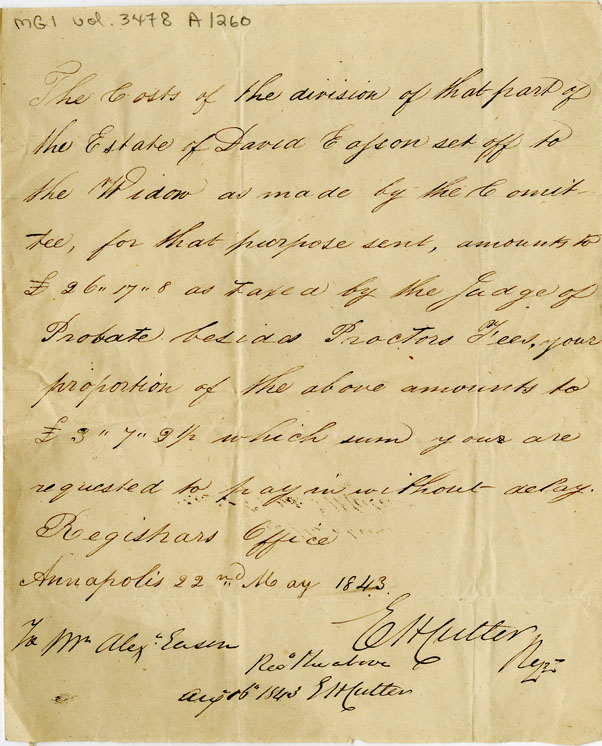 MG1 vol. 3478 A/260
The Costs of the division of that part of
the Estate of David Eaſson set off to
the Widow as made by the Comit-
tee, for that purpose sent, amounts to
£ 26 " 17 " 8 as taxed by the Judge of
Probate besides Proctors Fees, your
proportion of the above amounts to
£ 3 " 7 " 2½ which sum your are
requested to pay in without delay.
Registrars Office
Annapolis 22nd May 1843.
To Mr Alexr Easson
E H Cutler
Regr
Recd the above
Aug 16th 1843 E H Cutler